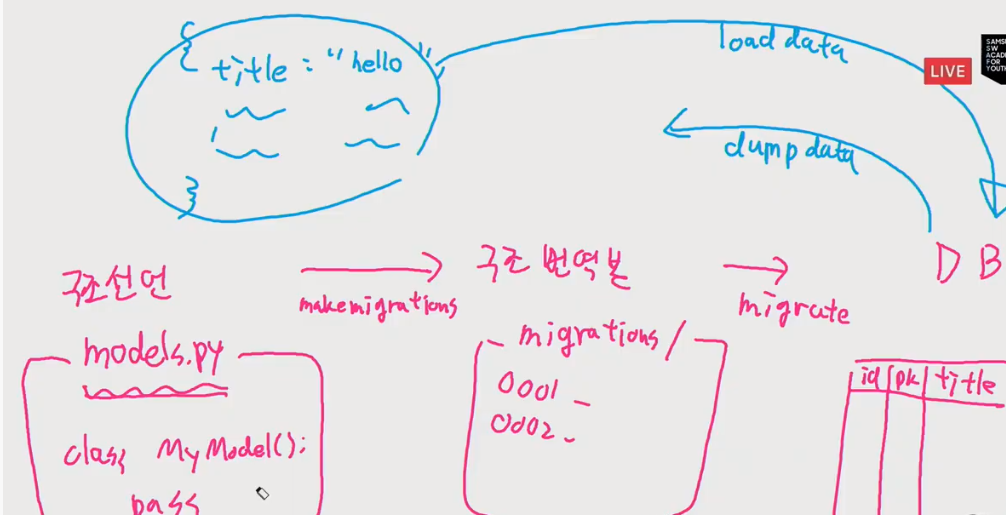 {
title : "hello",
load data
LIVE
SAMS
SW
ACAD
FOR
YOUTH
dumpdata
}
구조선언
makemigrations
구조 번역본
migrate
DB
models.py
class MyModel():
pass
migrations/
0001_
0002_
id pk title